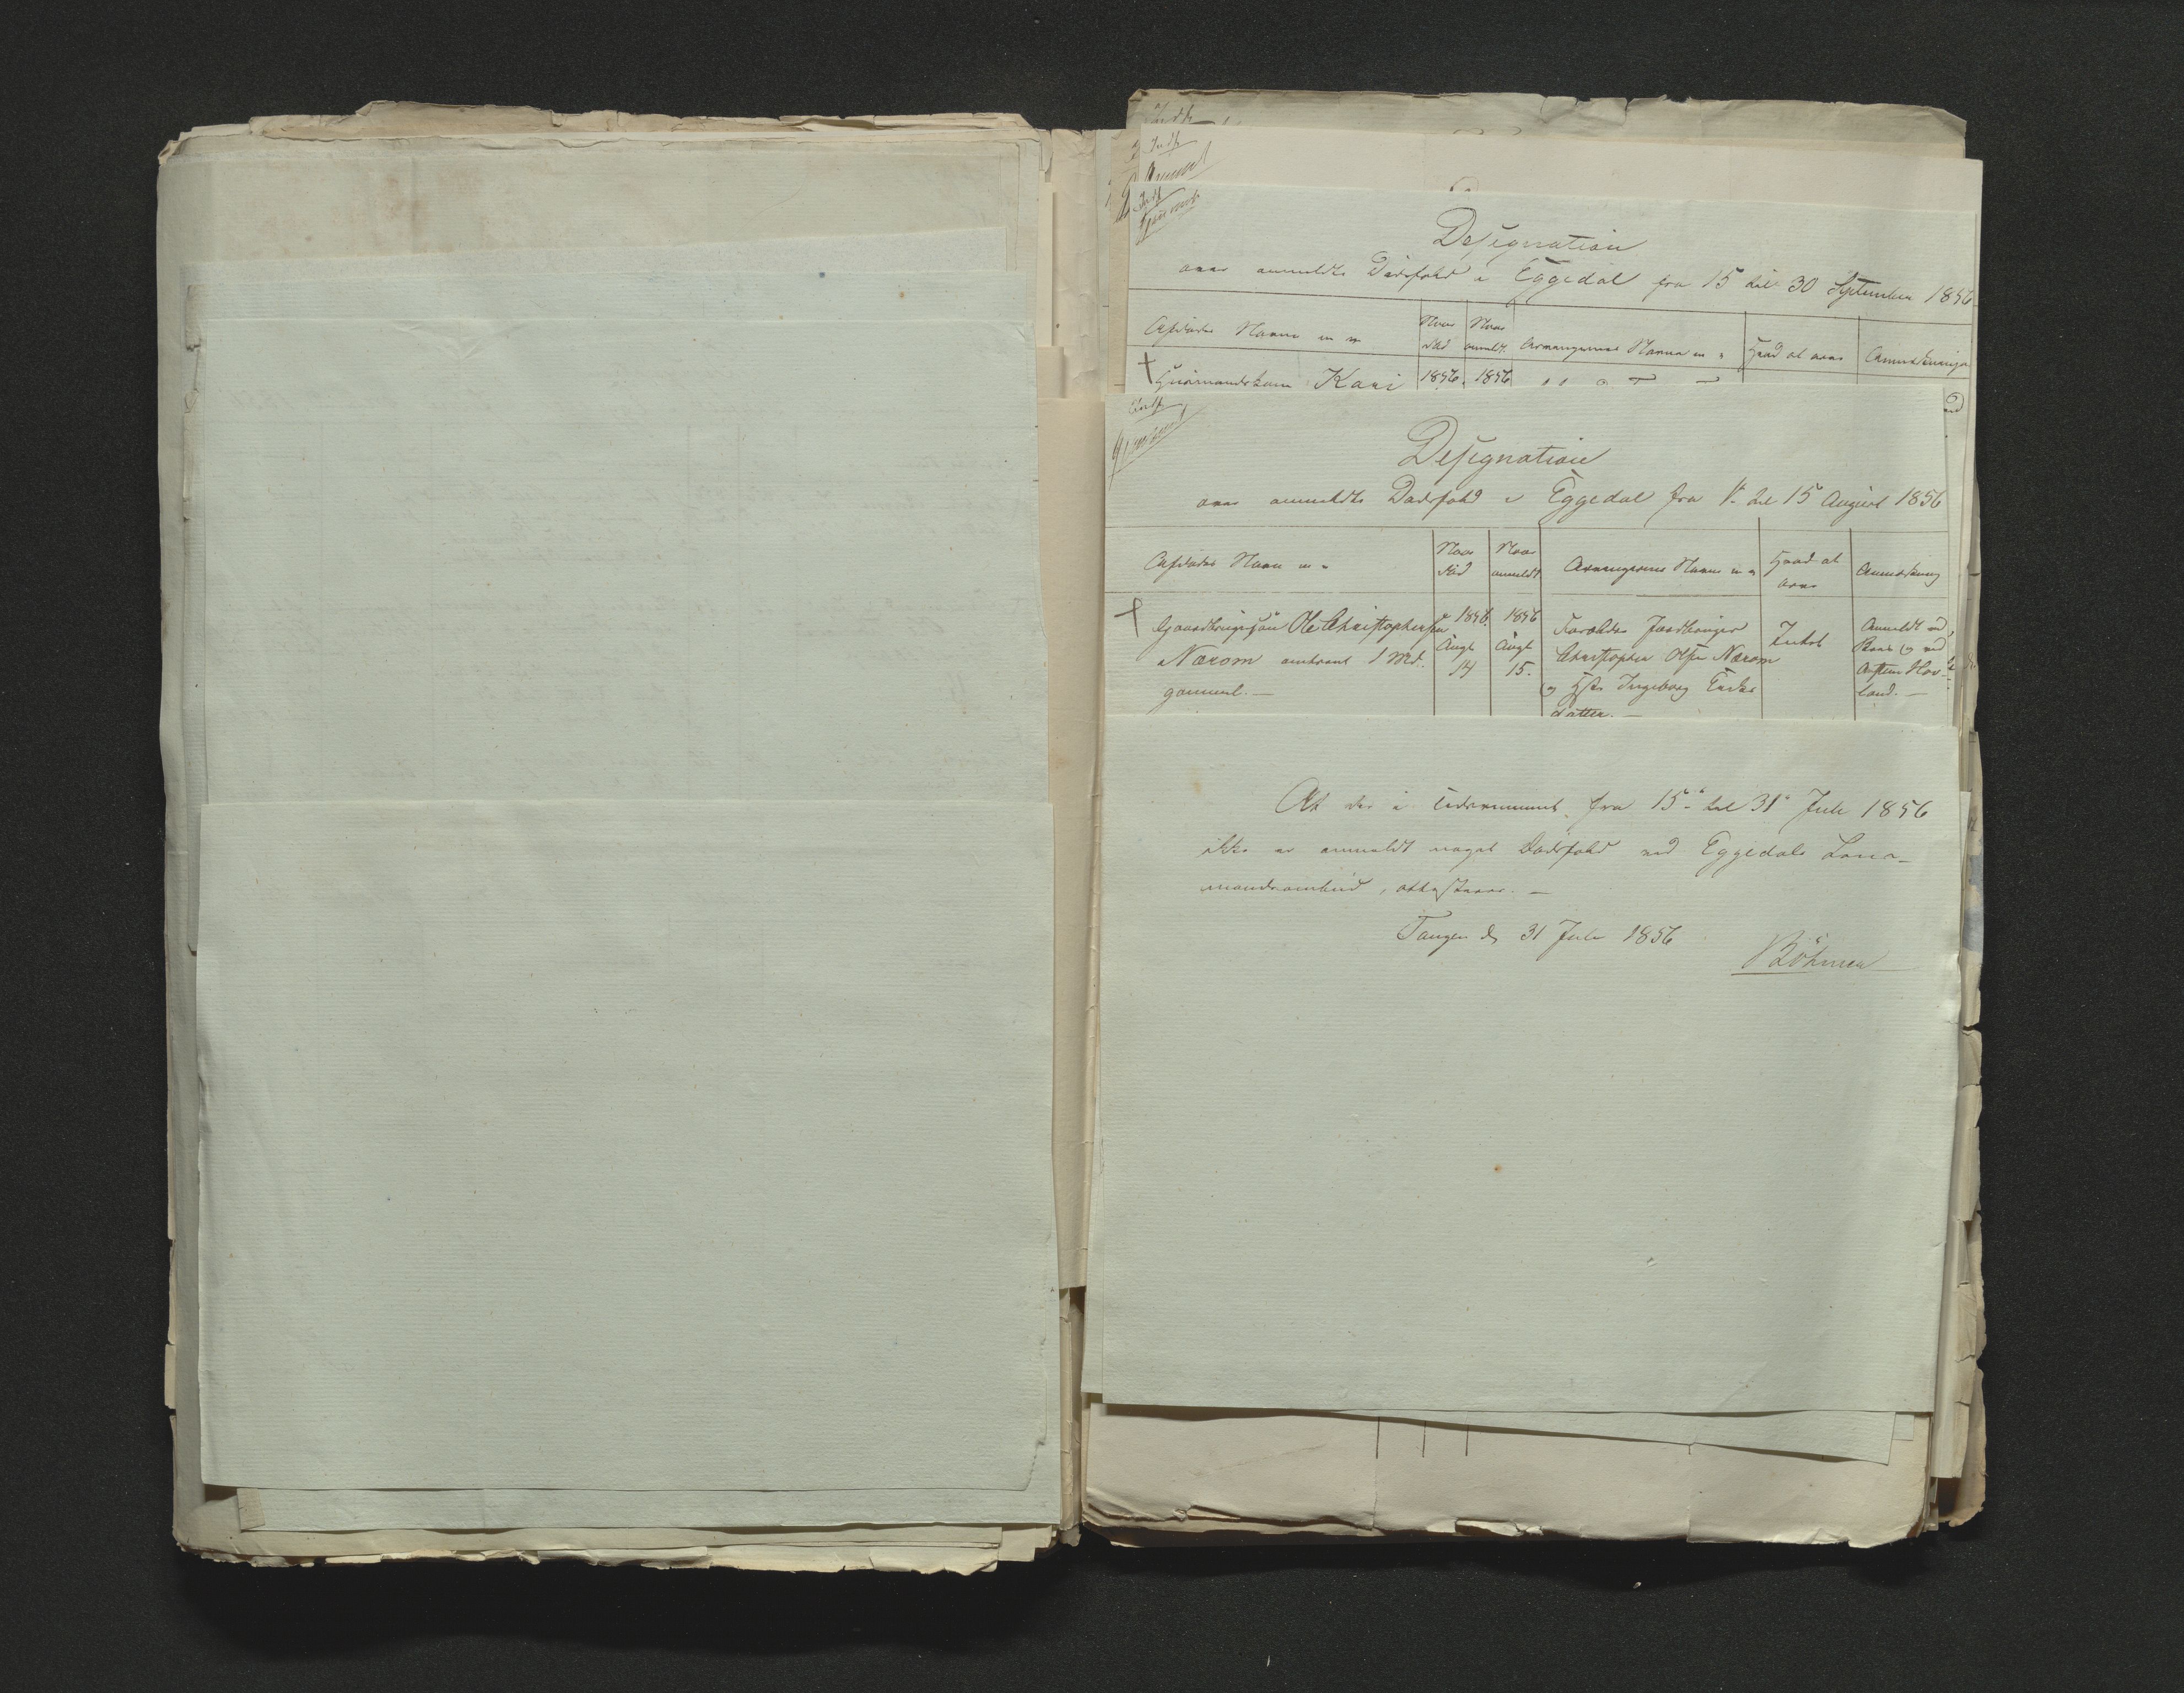 Indf
Designation
over anmeldte Dødsfald i Eggedal fra 15 til 30 September 1856
Afdødes Navn m m
Naar død
Naar anmeldt.
Arvingernes Navne m m
Hvad at arve
Anmærkninger
† Huusmandskone Kari
1856.
1856
Indf
Designation
over anmeldte Dødsfald i Eggedal fra 1ste til 15 August 1856
Afdødes Navn m m
Naar død
Naar anmeldt
Arvingernes Navne m m
Hvad at arve
Anmærkning
† Gaardbrugersøn Ole Christophersen
Nærom omtrent 1 Md.
gammel. —
1856.
Augt
14
1856
Augt
15.
Forældre Jordbruger
Christopher Olsen Nærom
og Hstr Ingeborg Endre
datter. —
Intet
Anmeldt ved
og ved
land. —
At der i Tidsrummet fra 15de til 31te Juli 1856
ikke er anmeldt noget Dødsfald ved Eggedals Lens-
mandsombud, attesteres. —
Tangen d 31 Juli 1856
Böhmer